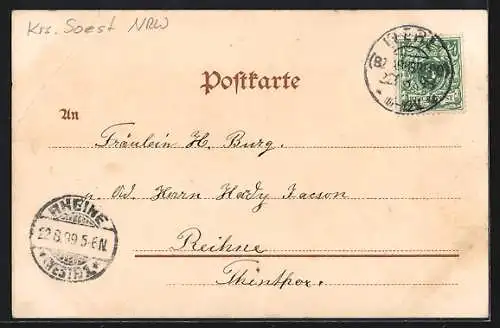 Krs. Soest NRW
WERL
Postkarte
An
Fräulein H. Burg.
p. Ad. Herrn Hady Jacson
Reihne
Thinthor.
RHEINE
22.8.99.5-6N.
* (WESTF.) *